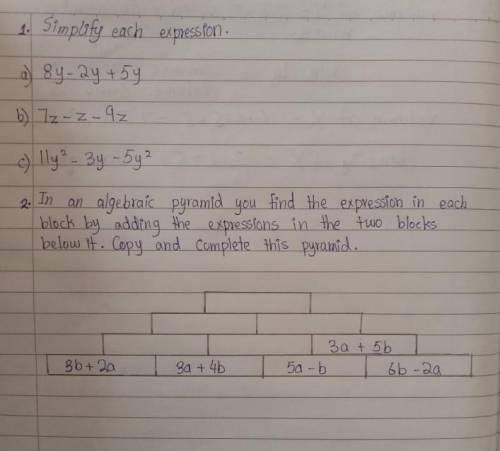 1. Simplify each expression.
a) 8y - 2y + 5y
b) 7z - z - 9z
c) 11y² - 3y - 5y²
2. In an algebraic pyramid you find the expression in each
block by adding the expressions in the two blocks
below it. Copy and complete this pyramid.
3a + 5b
3b + 2a 3a + 4b 5a - b 6b - 2a